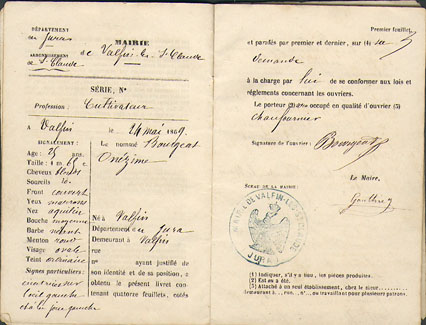 DÉPARTEMENT
du Jura
ARRONDISSEMENT
de St Claude
MAIRIE
de Valfin-les-St-Claude
SÉRIE, N°
Profession: Cultivateur
A Valfin le 24 mai 1869.
SIGNALEMENT:
Age: 25 ans
Taille: 1 m 65 c
Cheveux blonds
Sourcils id.
Front couvert
Yeux
Nez aquilin
Bouche moyenne
Barbe
Menton rond
Visage ovale
Teint ordinaire
Signes particuliers:
l'œil gauche
et à la joue gauche
Le nommé Bourgeat
Onézime
Né à Valfin
Département du Jura
Demeurant à Valfin
rue
n° ayant justifié de
son identité et de sa position, a
obtenu le présent livret contenant
quatorze feuillets, cotés
Premier feuillet.
et parafés par premier et dernier, sur (1) sa
demande
à la charge par lui de se conformer aux lois et
réglements concernant les ouvriers.
Le porteur (2) occupé en qualité d'ouvrier (3)
chaufournier
Signature de l'ouvrier: Bourgeat
Le Maire,
SCEAU DE LA MAIRIE:
MAIRIE DE VALFIN-LES-ST-CLAUDE
JURA
(1) Indiquer, s'il y a lieu, les pièces produites.
(2) Est ou a été.
(3) Attaché à un seul établissement, chez le sieur
demeurant à, rue, n° ou travaillant pour plusieurs patrons.